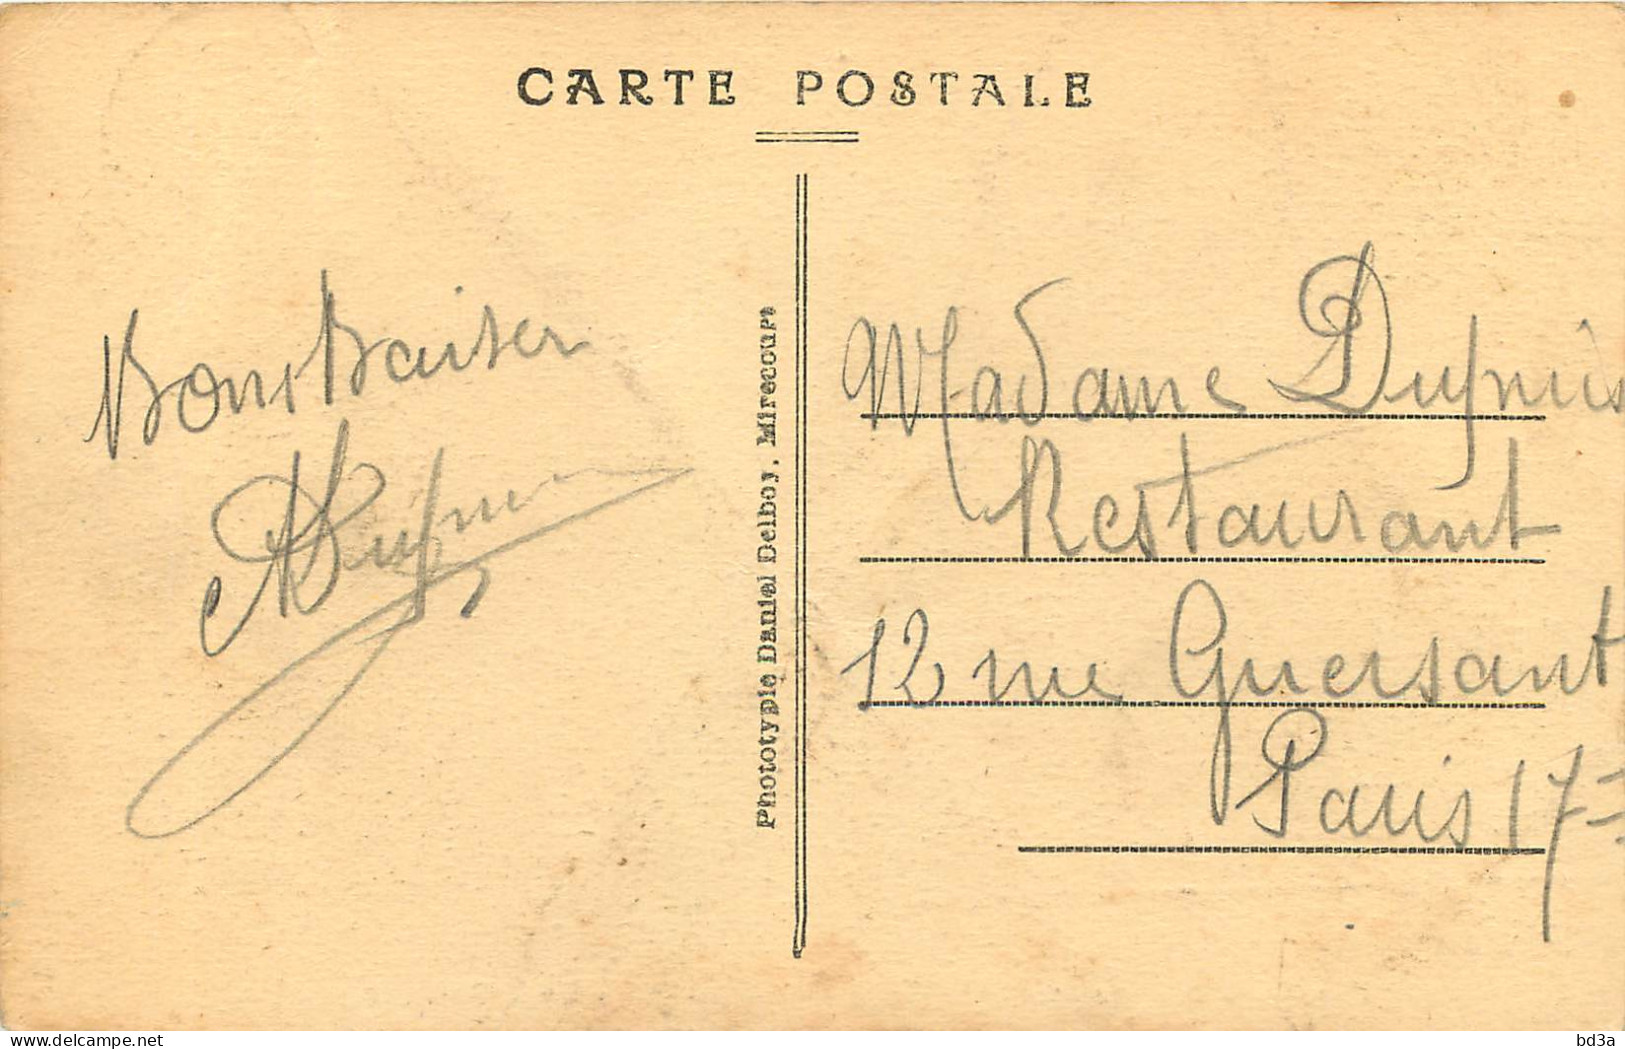 CARTE POSTALE
Bons Baiser
ADupuis
Phototypie Daniel Delboy, Mirecourt
Madame Dupuis
Restaurant
12 rue Guersant
Paris 17
delcampe.net
bd3a